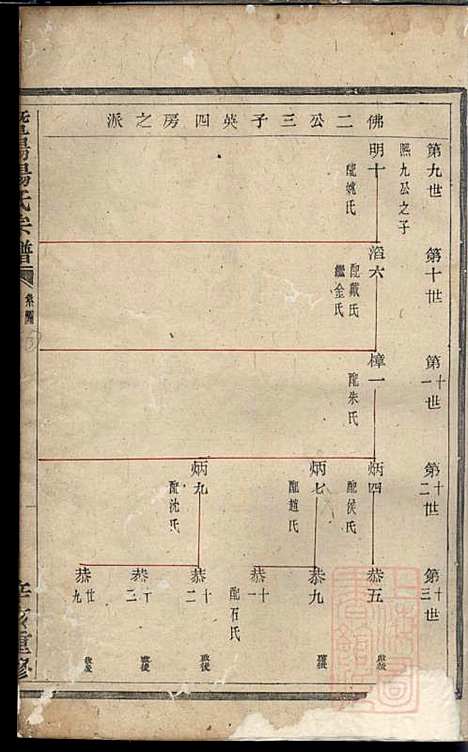 佛二公三子英四房之派
第九世
熙九公之子
明十
配姚氏
第十世
滔六
配戴氏
繼金氏
第十一世
樟一
配朱氏
第十二世
炳四
配侯氏
炳七
配趙氏
炳九
配沈氏
第十三世
恭五
恭九
恭十一
配石氏
恭十二
恭廿九
楊氏宗譜
重修